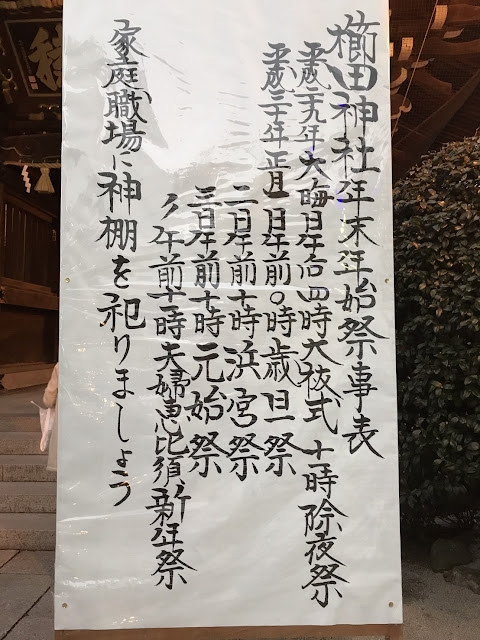 櫛田神社年末年始祭事表
平成二十九年大晦日午后四時大祓式 十一時除夜祭
平成三十年正月一日午前〇時歳旦祭
二日午前十時浜宮祭
三日午前十時元始祭
〃午前十一時夫婦恵比須新年祭
家庭職場に神棚を祀りましょう